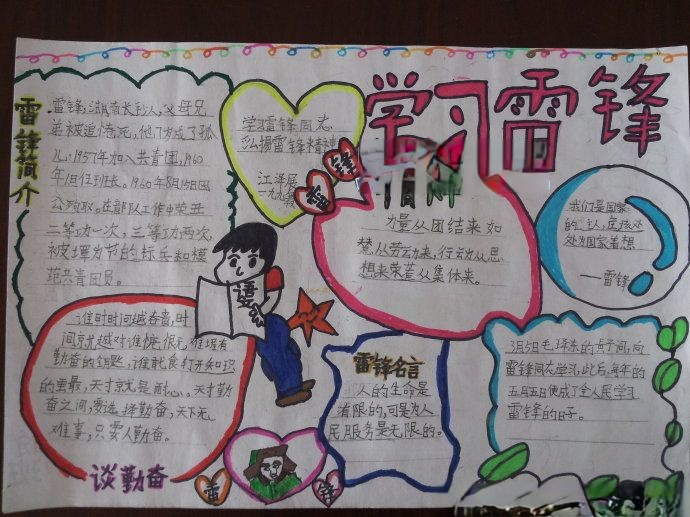 学习雷锋
精神
雷锋简介
雷锋,湖南长沙人,父母兄
弟被迫害死,他7岁成了孤
儿。1957年加入共青团,1960
年1月任班长。1960年8月15日因
公殉职。在部队工作中荣立
二等功一次,三等功两次,
被评为节约标兵和模
范共青团员。
学习雷锋同志
弘扬雷锋精神
江泽民
一九九
雷
锋
力量从团结来,
从劳动来,行动从思
想来荣誉从集体来。
我们是国家
的主人,应该处
处为国家着想
——雷锋
谁对时间越吝啬,时
间就越对谁慷慨
勤奋的钥匙,谁就能打开知识
的,天才就是耐心。天才勤
奋之间,要选择勤奋,天下无
难事,只要人勤奋。
谈勤奋
雷锋名言
人的生命是
有限的,可是为人
民服务是无限的。
3月5日毛泽东的
雷锋同志学习,此后,每年的
便成了全人民学习
雷锋的日子。
雷
锋